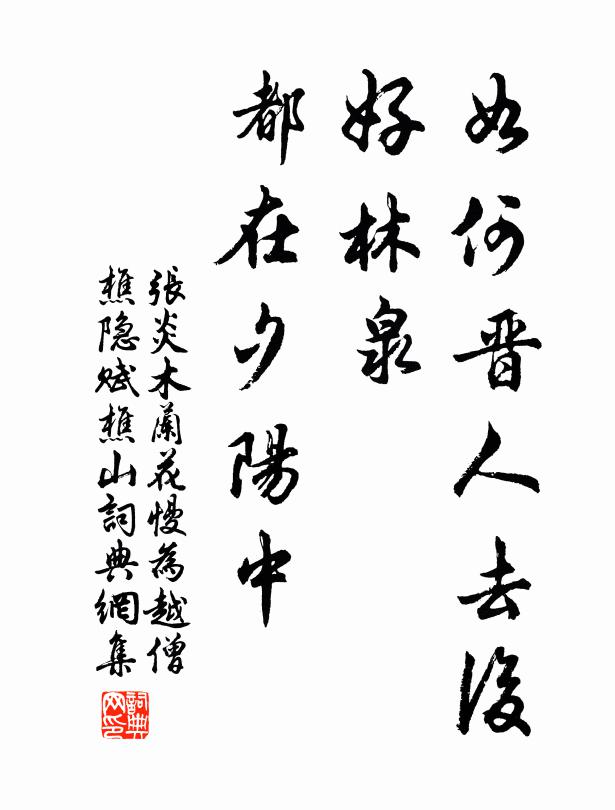 如何晋人去後
好林泉
都在夕陽中
張炎木蘭花慢為越僧
樵隐賦樵山詞典網集
詞典網印